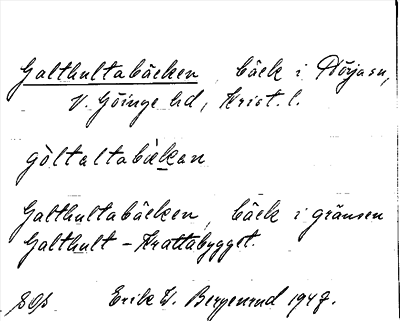 Galthultabäcken, bäck i Nörjasn,
V. Göinge hd, Krist. l.
gòltaltabèkan
Galthultabäcken, bäck i gränsen
Galthult - Krattabygget.
Erik W. Bergenrud 1947.